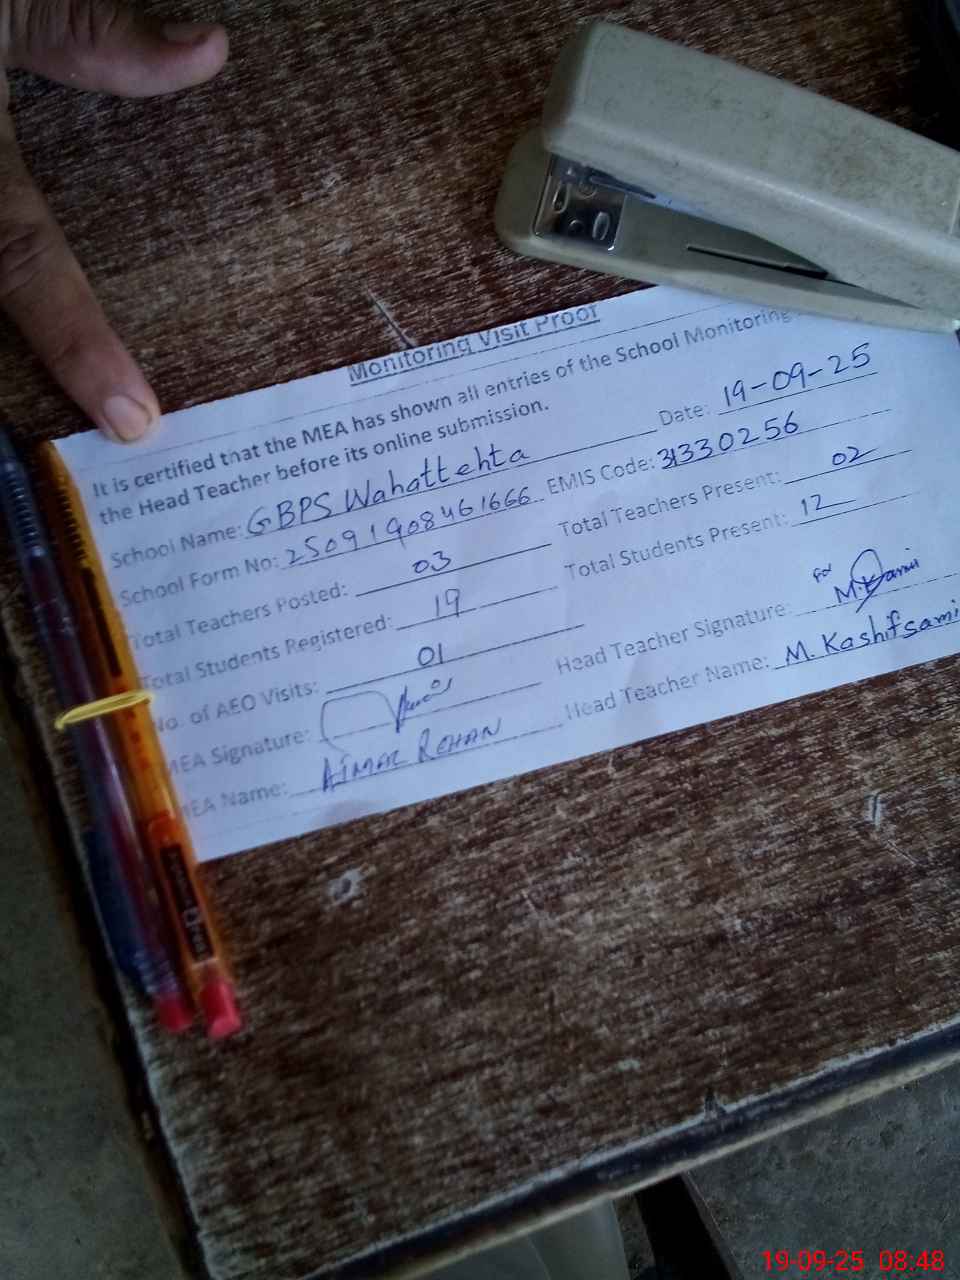 Monitoring Visit Proof
It is certified that the MEA has shown all entries of the School Monitoring
the Head Teacher before its online submission.
School Name: GBPS Wahattehta Date: 19-09-25
School Form No: 250919084 61666 EMIS Code: 31330256
Total Teachers Posted: 03 Total Teachers Present: 02
Total Students Registered: 19 Total Students Present: 12
No. of AEO Visits: 01
MEA Signature: Head Teacher Signature: for M. Kami
MEA Name: AIMAL REHAN Head Teacher Name: M. Kashif sami
19-09-25 08:48